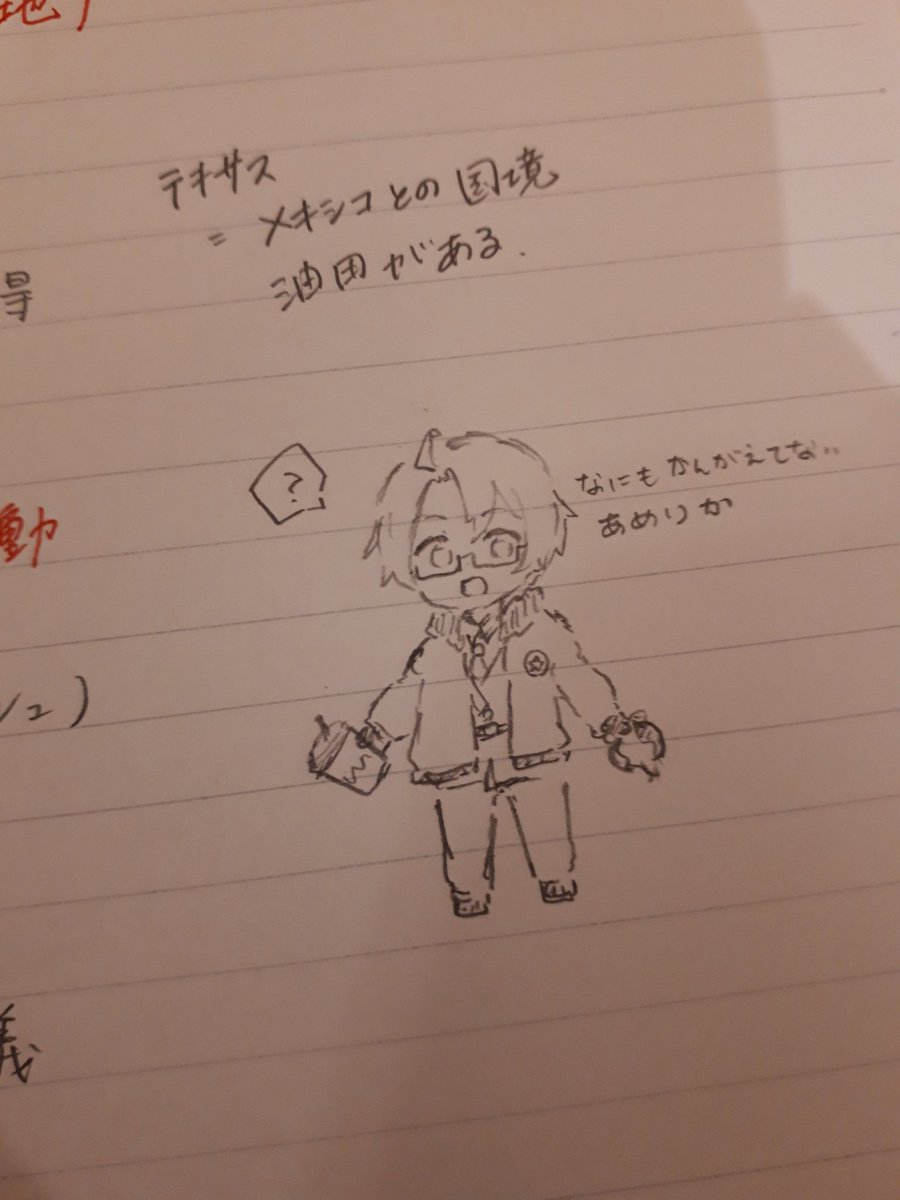 地)
テキサス
= メキシコとの国境
油田がある.
?
なにもかんがえてな..
あめりか
動
シュ)
義